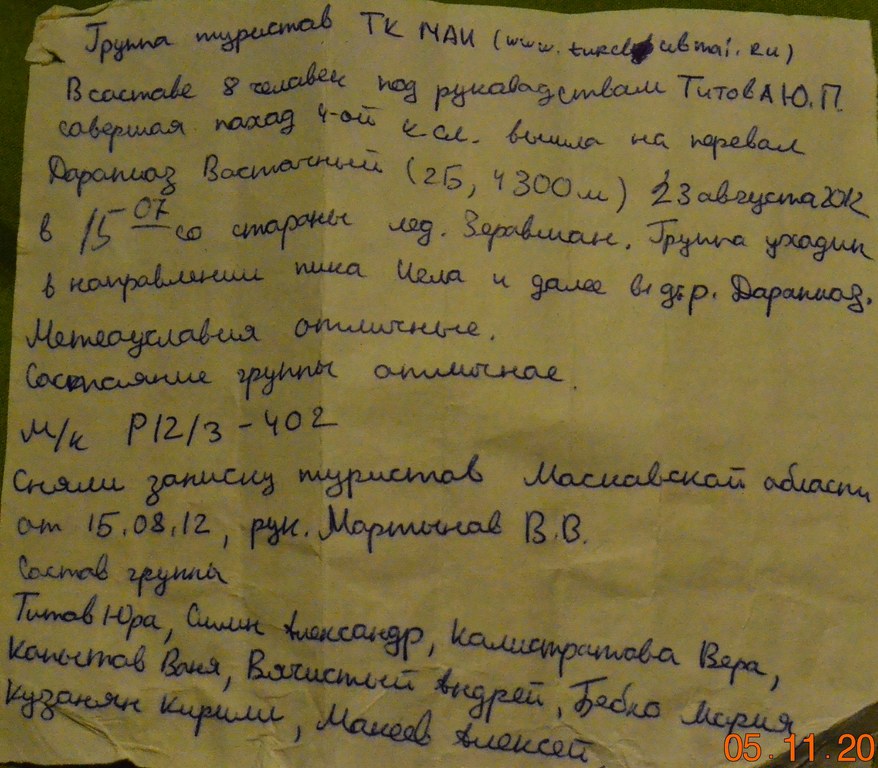 Группа туристов ТК МАИ (www.turclubmai.ru)
В составе 8 человек под руководством ТитовА Ю.П.
совершая поход 4-ой к.сл. вышла на перевал
Дарапиоз Восточный (2Б, 4300м) 23 августа
в 15 07 со стороны лед. Зеравшан. Группа уходит
в направлении пика и далее в дол. р. Дарапиоз.
Метеоусловия отличные.
Состояние группы отличное.
м/к Р12/3-402
Сняли записку туристов Московской области
от 15.08.12, рук. Мартынов В.В.
Состав группы
Титов Юра, Силин Александр, Калистратова Вера,
Копытов Ваня, Вячистый Андрей, Бебко Мария
Кузанян Кирилл, Макеев Алексей
05.11.20